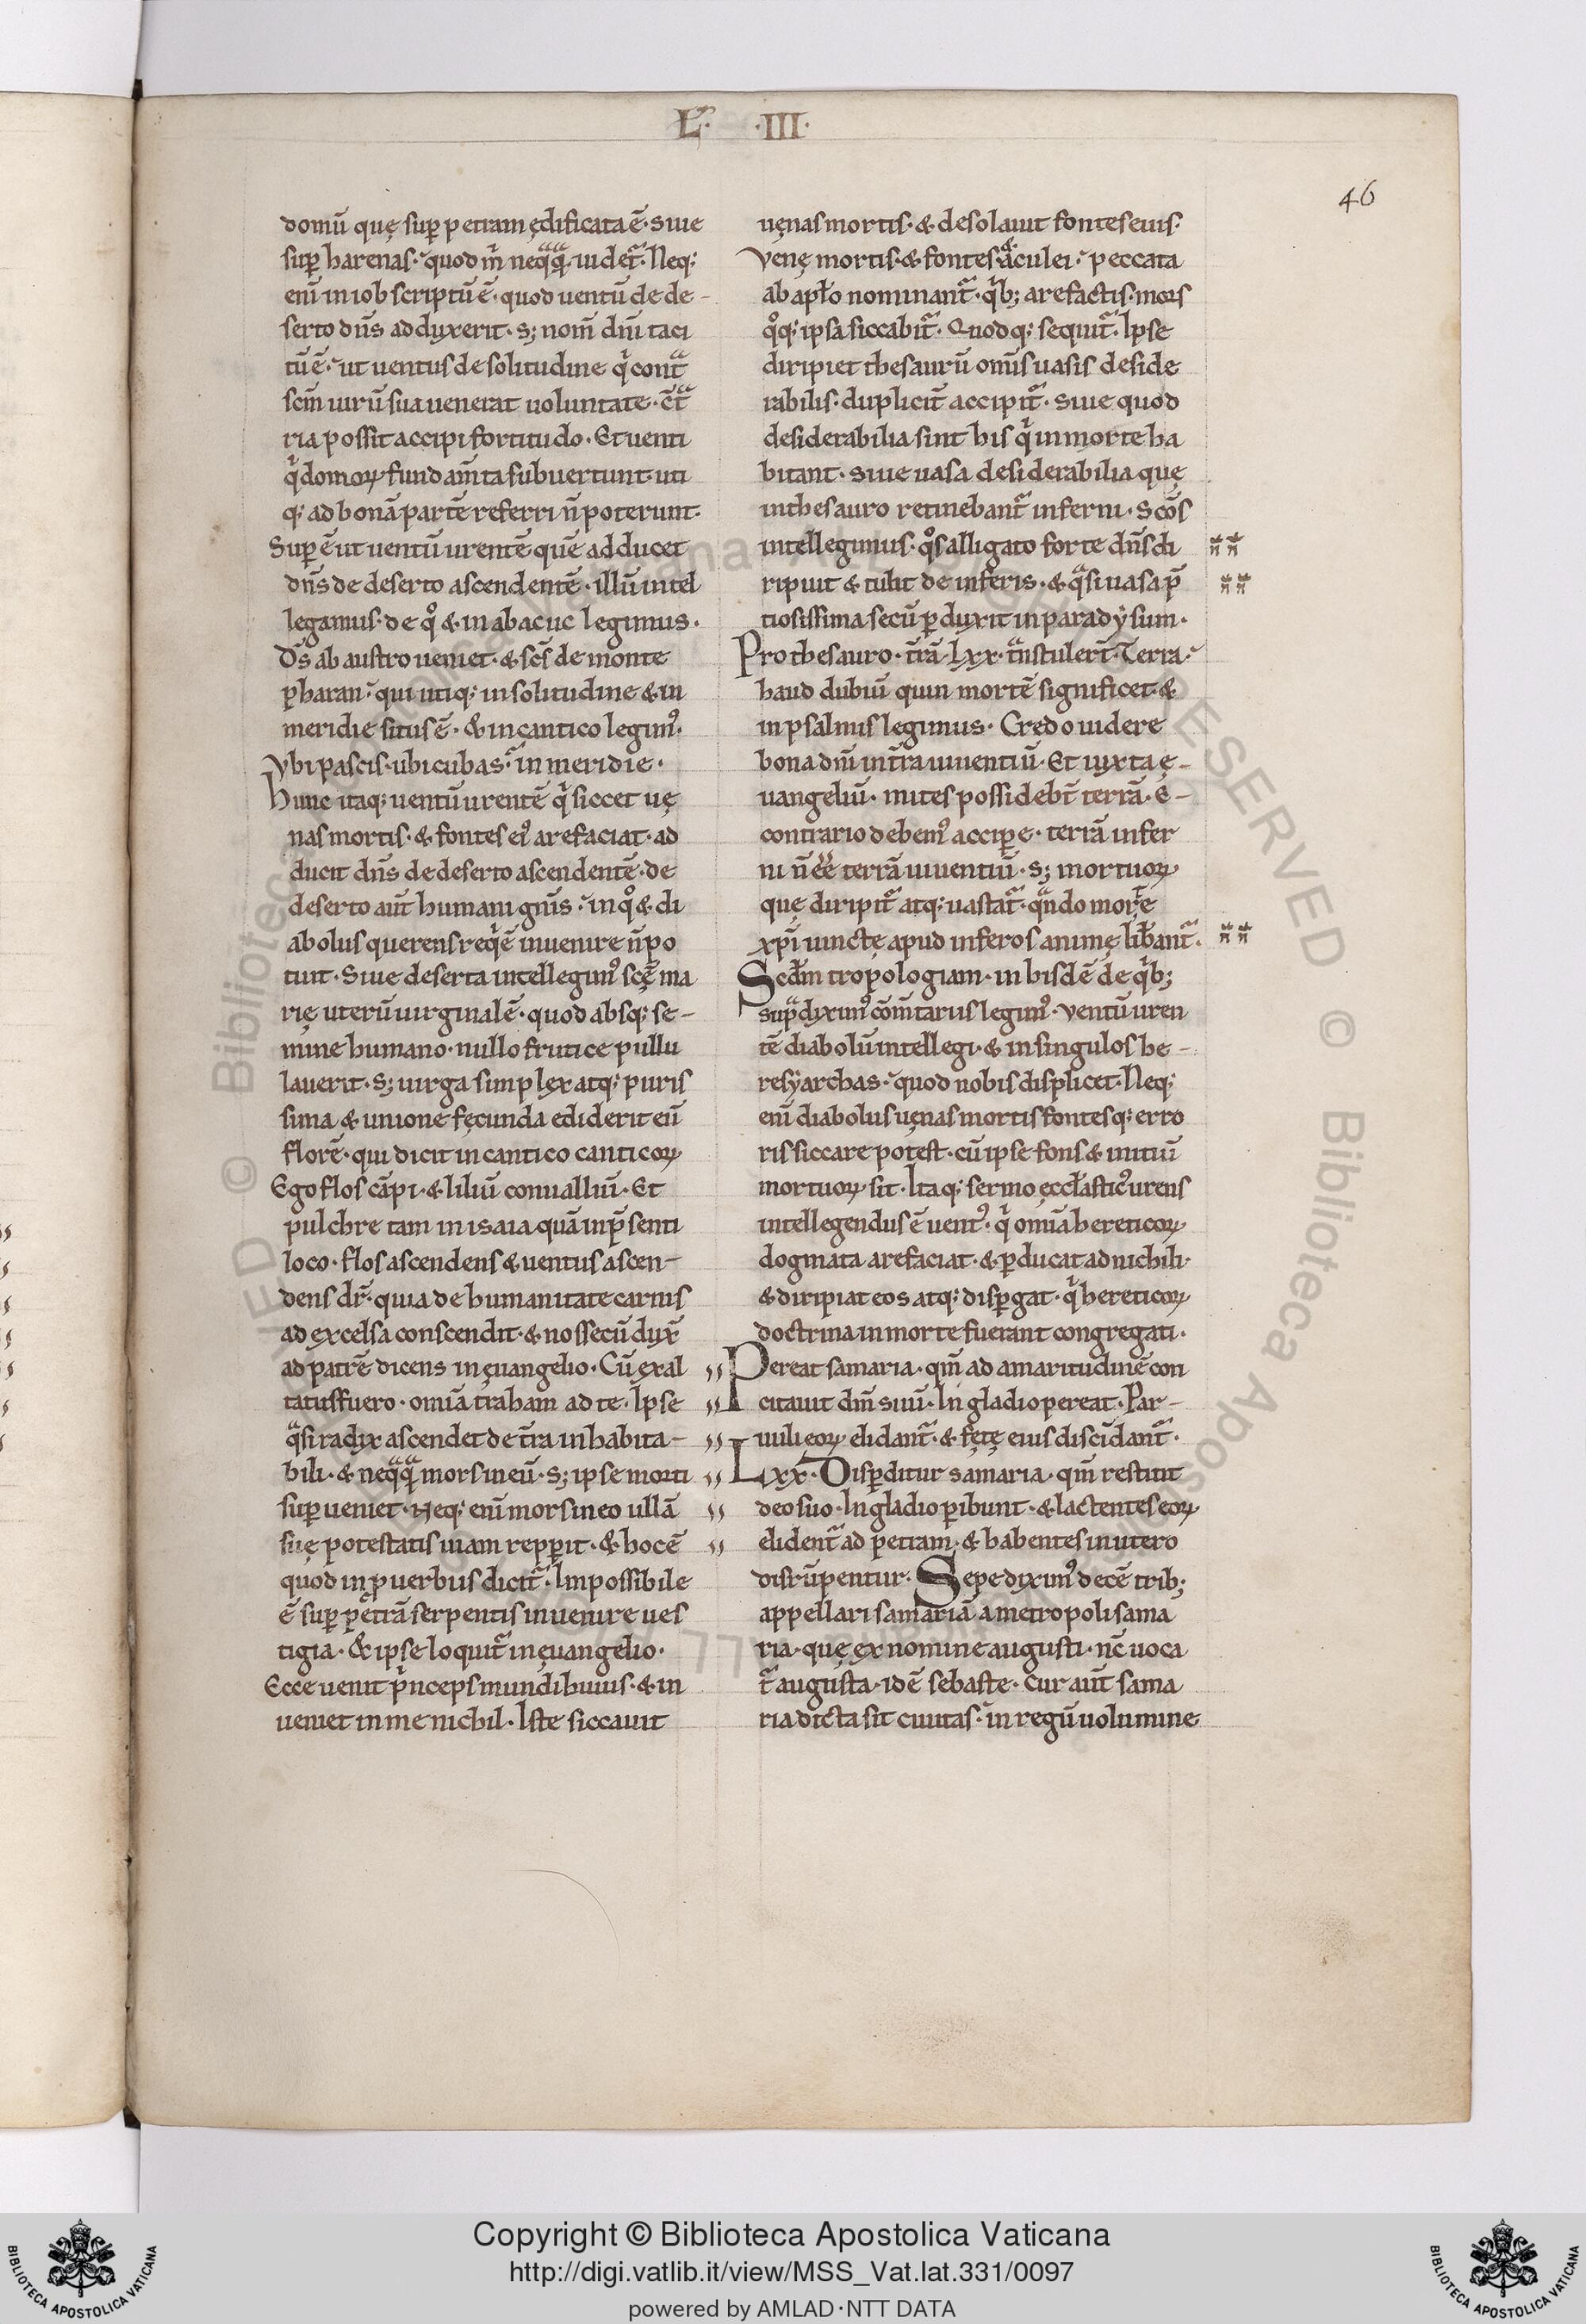 L. ·III·
46
domū quę sup petram ędificata ē. Siue
sup harenas. quod m̄ neq̄q̄ uidet̄. Neq;
enī in iob scriptū ē. quod uentū de de-
serto dn̄s adduxerit. s; nom̄ dn̄i taci
tū ē. ut uentus de solitudine q̇ cont̄
scm̄ uirū sua uenerat uoluntate. ct̄
ria possit accipi fortitudo. Et uenti
q̇ domoꝝ fundam̄ta subuertunt uti
q; ad bonā partē referri n̄ poterunt.
Sup ē ut uentū urentē quē adducet
dn̄s de deserto ascendentē. illū intel
legamus. de qo & in abacuc legimus.
Ds̄ ab austro ueniet. & scs̄ de monte
pharan. qui utiq; in solitudine & in
meridie situs ē. & in cantico legim᾽.
Vbi pascis. ubi cubas. in meridie.
Hunc itaq; uentū urentē q̇ siccet uę
nas mortis. & fontes ei᾽ arefaciat. ad
ducit dn̄s de deserto ascendentē. de
deserto aut̄ humani gn̄is. in qo & di
abolus querens reqēe inuenire n̄ po
tuit. Siue deserta intellegim᾽ scę ma
rię uterū uirginalē. quod absq; se-
mine humano. nullo frutice pullu
lauerit. s; uirga simplex atq; puris
sima & unione fęcunda ediderit eū
florē. qui dicit in cantico canticoꝝ.
Ego flos cāpi. & liliū conualliū. Et
pulchre tam in isaia quā in p̄senti
loco. flos ascendens & uentus ascen-
dens dr̄. quia de humanitate carnis
ad excelsa conscendit. & nos secū dux̄
ad patrē dicens in euangelio. Cū exal
tatus fuero. omīa traham ad te. Ipse
q̄si radyx ascendet de tr̄a inhabita-
bili. & neq̄q̄ mors in eū. s; ipse morti
superueniet. Neq; enī mors in eo ullā
suę potestatis uiam repperit. & hoc ē
quod in puerbiis dicit̄. Impossibile
ē sup petrā serpentis inuenire ues
tigia. & ipse loquit̄ in euangelio.
Ecce uenit p̄nceps mundi huius. & in
ueniet in me nichil. Iste siccauit
uęnas mortis. & desolauit fontes eius.
Venę mortis. & fontes aculei. peccata
ab apło nominant̄. q̇b; arefactis. mors
qoq; ipsa siccabit̄. Quodq; sequit̄. Ipse
diripiet thesaurū omīs uasis deside
rabilis. duplicit̄ accipit̄. Siue quod
desiderabilia sint his q̇ in morte ha
bitant. Siue uasa desiderabilia quę
in thesauro retinebant̄ inferni. Scōs
intellegimus. qos alligato forte dn̄s di
ripuit & tulit de inferis. & q̄si uasa p̄
tiosissima secū pduxit in paradẏsum.
Pro thesauro. tr̄ā. Lxx. t̄nstulert̄. Terra.
haud dubiū quin mortē significet. &
in psalmis legimus. Credo uidere
bona dn̄i in tr̄a uiuentiū. Et iuxta e-
uangeliū. mites possidebt̄ terrā. E-
contrario debem᾽ accipe. terrā infer
ni n̄ ee terrā uiuentiū. s; mortuoꝝ
quę diripit̄ atq; uastat̄. q̄ndo morte
xp̄i uinctę apud inferos animę libant̄.
Scdm̄ tropologiam. in hisdē de q̇b;
sup̄ dyxim᾽ cōmtariis legim᾽. Ventū uren
tē diabolū intellegi. & in singulos he-
resẏarchas. quod nobis displicet. Neq;
enī diabolus uęnas mortis fontesq; erro
ris siccare potest. cū ipse fons & initiū
mortuoꝝ sit. Itaq; sermo ęccłastic᾽ urens
intellegendus ē uent᾽. q̇ omīa hereticoꝝ
dogmata arefaciat. & pducat ad nichili.
& diripiat eos atq; dispgat. q̇ hereticoꝝ
doctrina in morte fuerant congregati.
Pereat samaria. qm̄ ad amaritudinē con
citauit dm̄ suū. In gladio pereat. Par-
uuli eoꝝ elidant̄. & fętę eius discidant̄.
Lxx. Disperditur samaria. qm̄ restitit
deo suo. In gladio pibunt. & lactentes eoꝝ
elident̄ ad petram. & habentes in utero
disrūpentur. Sepe dyxim᾽ decē trib;
appellari samariā a metropoli sama
ria. quę ex nomine augusti. nc̄ uoca
t̄ augusta. id ē sebaste. Cur aut̄ sama
ria dicta sit ciuitas. in regū uolumine
Copyright © Biblioteca Apostolica Vaticana
http://digi.vatlib.it/view/MSS_Vat.lat.331/0097
powered by AMLAD·NTT DATA
BIBLIOTECA APOSTOLICA VATICANA
BIBLIOTECA APOSTOLICA VATICANA